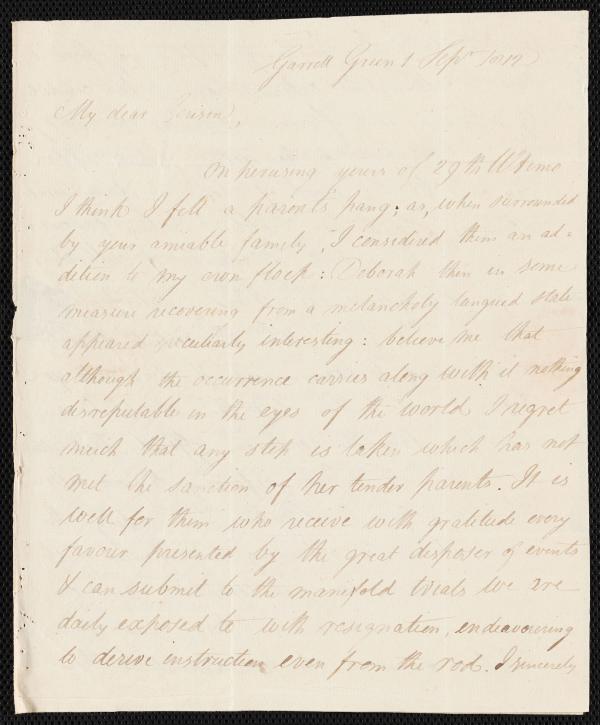 Garrett Green 1 Sepr 1812
My dear Friend,
On perusing yours of 29th Ultimo
I think I felt a parent's pang; as, when surrounded
by your amiable family, I considered them an ad=
dition to my own flock: Deborah then in some
measure recovering from a melancholy langued state
appeared peculiarly interesting: believe me that
although the occurrence carries along with it nothing
disreputable in the eyes of the world I regret
much that any step is taken which has not
met the sanction of her tender parents. It is
well for them who receive with gratitude every
favour presented by the great disposer of events
& can submit to the manifold trials we are
daily exposed to with resignation, endeavouring
to derive instruction even from the rod. I sincerely